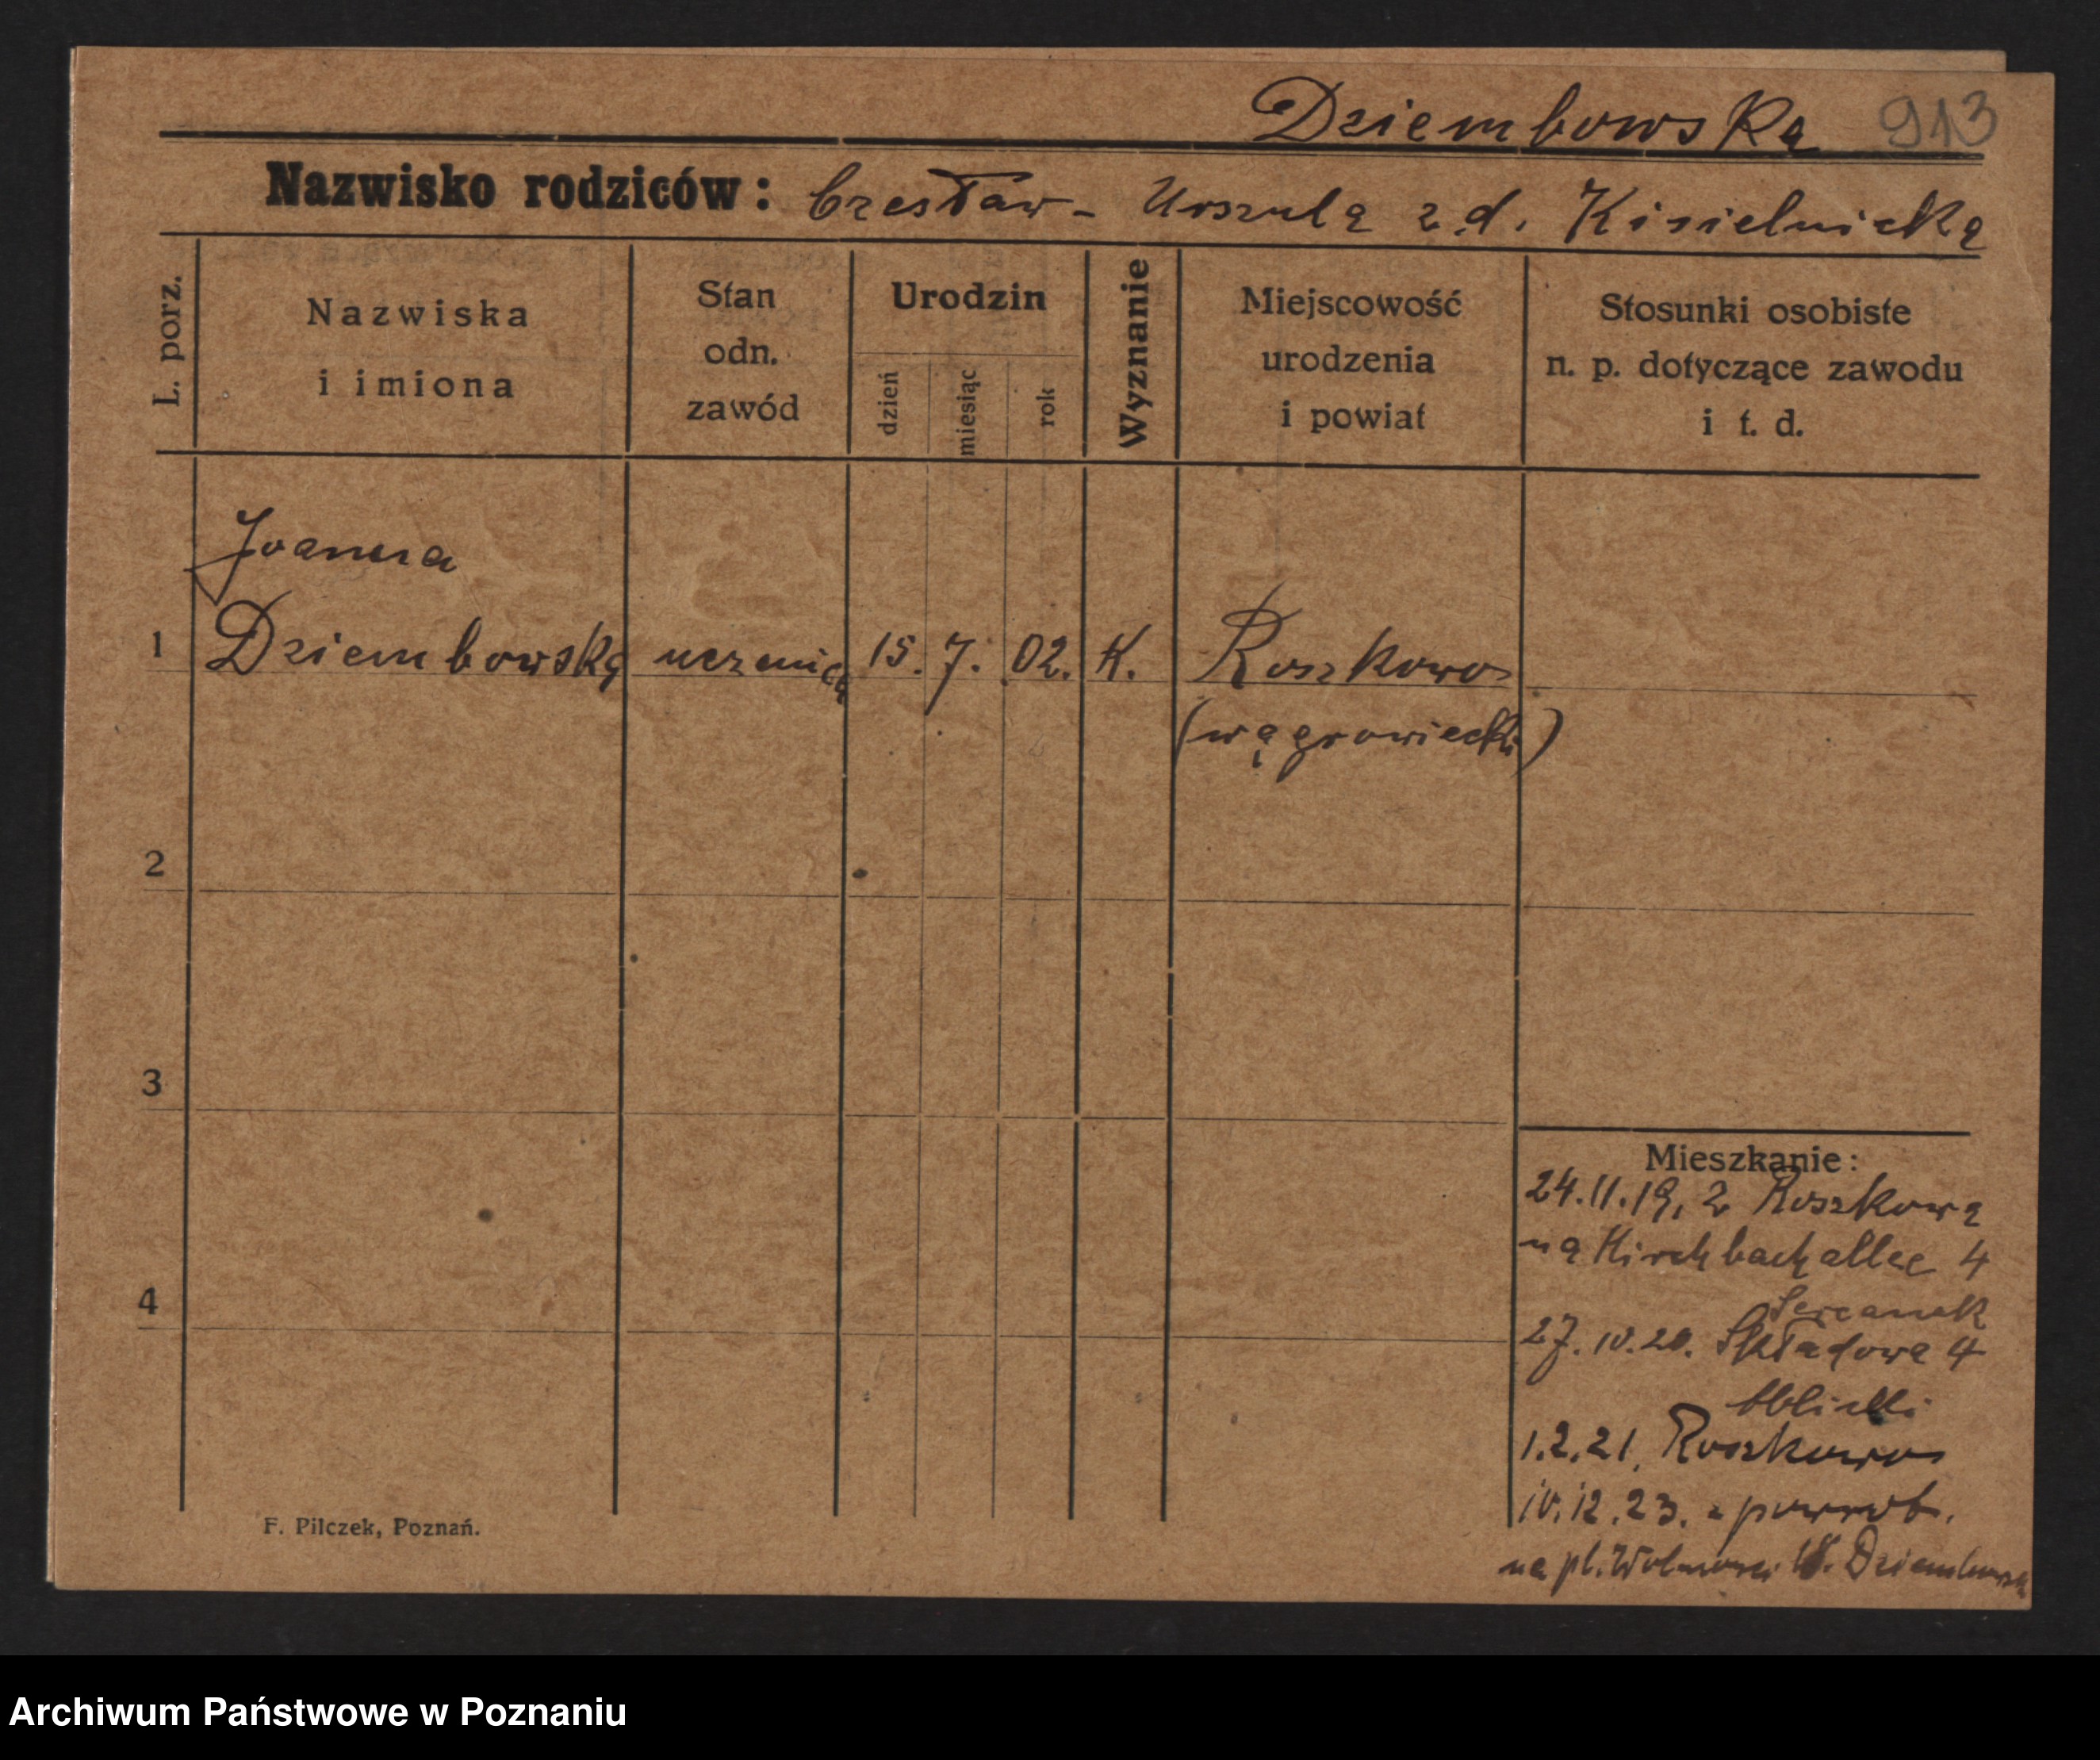 Dziembowska 913
Nazwisko rodziców: Czesław - Urszula z d. Kisielnicka
L. porz.
Nazwiska
i imiona
Stan
odn.
zawód
Urodzin
dzień
miesiąc
rok
Wyznanie
Miejscowość
urodzenia
i powiat
Stosunki osobiste
n. p. dotyczące zawodu
i t. d.
Joanna
1 Dziembowska uczenica 15. 7. 02. K. Roszkowo
(wągrowiecki)
2
3
4
Mieszkanie:
24.11.19, z Roszkowa
na Kirchbachallee 4
27.10.20. Składowa 4
1.2.21, Roszkowo
10.12.23. z powrot.
na pl. Wolności 18. Dziembowska
F. Pilczek, Poznań.
Archiwum Państwowe w Poznaniu